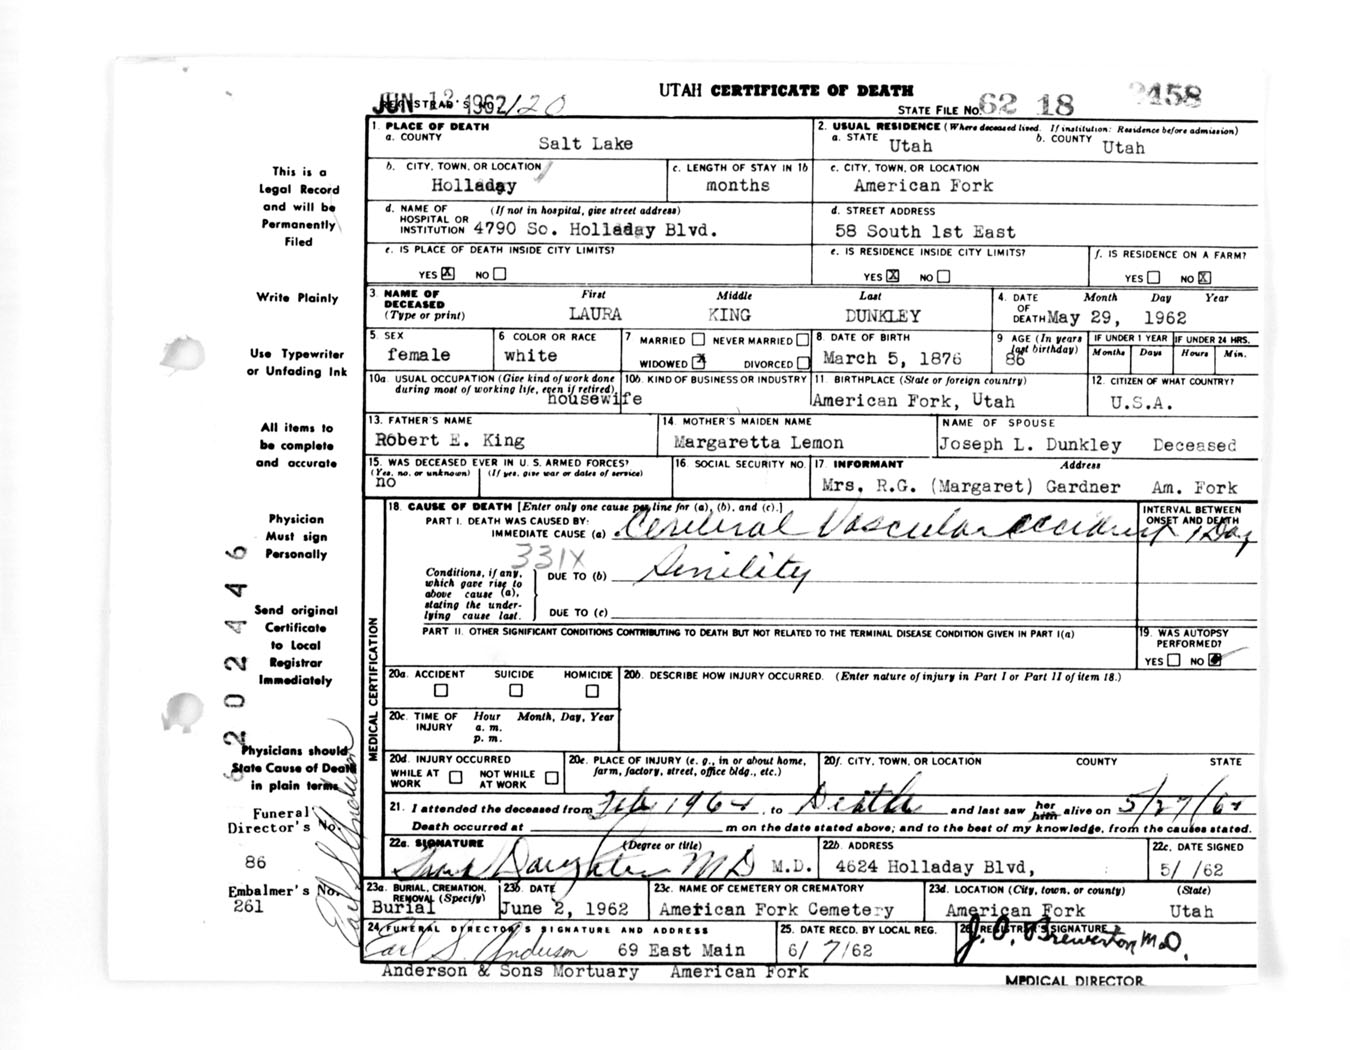 UTAH CERTIFICATE OF DEATH
JUN 12 1962 REGISTRAR'S NO. 120
STATE FILE NO. 62 18 2458
1. PLACE OF DEATH
a. COUNTY Salt Lake
2. USUAL RESIDENCE (Where deceased lived. If institution: Residence before admission)
a. STATE Utah b. COUNTY Utah
b. CITY, TOWN, OR LOCATION Holladay
c. LENGTH OF STAY IN 1b months
c. CITY, TOWN, OR LOCATION American Fork
d. NAME OF HOSPITAL OR INSTITUTION (If not in hospital, give street address) 4790 So. Holladay Blvd.
d. STREET ADDRESS 58 South 1st East
e. IS PLACE OF DEATH INSIDE CITY LIMITS? YES X NO
e. IS RESIDENCE INSIDE CITY LIMITS? YES X NO
f. IS RESIDENCE ON A FARM? YES NO X
3. NAME OF DECEASED (Type or print) First LAURA Middle KING Last DUNKLEY
4. DATE OF DEATH Month Day Year May 29, 1962
5. SEX female
6 COLOR OR RACE white
7 MARRIED NEVER MARRIED WIDOWED X DIVORCED
8 DATE OF BIRTH March 5, 1876
9 AGE (In years last birthday) 86
IF UNDER 1 YEAR Months Days
IF UNDER 24 HRS. Hours Min.
10a. USUAL OCCUPATION (Give kind of work done during most of working life, even if retired) housewife
10b. KIND OF BUSINESS OR INDUSTRY
11. BIRTHPLACE (State or foreign country) American Fork, Utah
12. CITIZEN OF WHAT COUNTRY? U.S.A.
13. FATHER'S NAME Robert E. King
14 MOTHER'S MAIDEN NAME Margaretta Lemon
NAME OF SPOUSE Joseph L. Dunkley Deceased
15. WAS DECEASED EVER IN U.S. ARMED FORCES? (Yes, no, or unknown) (If yes, give war or dates of service) no
16. SOCIAL SECURITY NO.
17. INFORMANT Address Mrs. R.G. (Margaret) Gardner Am. Fork
18. CAUSE OF DEATH [Enter only one cause per line for (a), (b), and (c).]
PART I. DEATH WAS CAUSED BY:
IMMEDIATE CAUSE (a) Cerebral Vascular accident
INTERVAL BETWEEN ONSET AND DEATH 1 Day
331X
Conditions, if any, which gave rise to above cause (a), stating the underlying cause last.
DUE TO (b) Senility
DUE TO (c)
PART II. OTHER SIGNIFICANT CONDITIONS CONTRIBUTING TO DEATH BUT NOT RELATED TO THE TERMINAL DISEASE CONDITION GIVEN IN PART I(a)
19. WAS AUTOPSY PERFORMED? YES NO
MEDICAL CERTIFICATION
20a. ACCIDENT SUICIDE HOMICIDE
20b. DESCRIBE HOW INJURY OCCURRED. (Enter nature of injury in Part I or Part II of item 18.)
20c. TIME OF INJURY Hour a. m. p. m. Month, Day, Year
20d. INJURY OCCURRED WHILE AT WORK NOT WHILE AT WORK
20e. PLACE OF INJURY (e. g., in or about home, farm, factory, street, office bldg., etc.)
20f. CITY, TOWN, OR LOCATION COUNTY STATE
21. I attended the deceased from Feb 1962 to Death and last saw her him alive on 5/27/62
Death occurred at m on the date stated above; and to the best of my knowledge, from the causes stated.
22a. SIGNATURE (Degree or title) MD M.D.
22b. ADDRESS 4624 Holladay Blvd,
22c. DATE SIGNED 5/ /62
23a. BURIAL, CREMATION, REMOVAL (Specify) Burial
23b. DATE June 2, 1962
23c. NAME OF CEMETERY OR CREMATORY American Fork Cemetery
23d. LOCATION (City, town, or county) (State) American Fork Utah
24 FUNERAL DIRECTOR'S SIGNATURE AND ADDRESS Earl S. Anderson 69 East Main
Anderson & Sons Mortuary American Fork
25. DATE RECD. BY LOCAL REG. 6/ 7/62
26 REGISTRAR'S SIGNATURE J. O. Brewerton M.D.
MEDICAL DIRECTOR
This is a
Legal Record
and will be
Permanently
Filed
Write Plainly
Use Typewriter
or Unfading Ink
All items to
be complete
and accurate
Physician
Must sign
Personally
Send original
Certificate
to Local
Registrar
Immediately
Physicians should
State Cause of Death
in plain terms
Funeral
Director's No.
86
Embalmer's No.
261
Earl S. Anderson
6202446